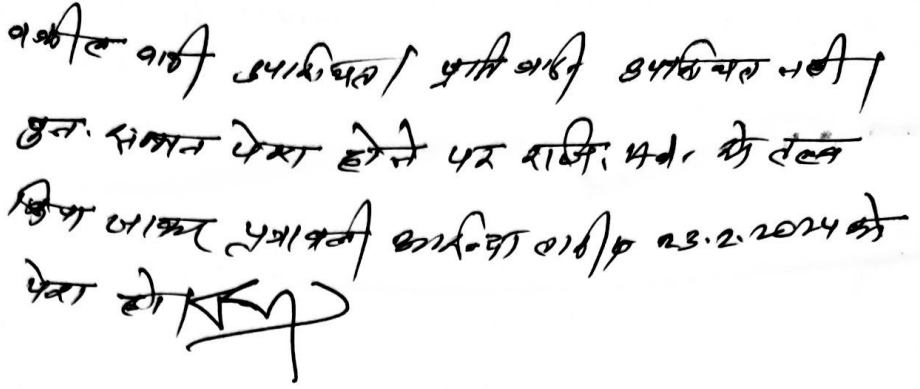 वकील वादी उपस्थित। प्रतिवादी उपस्थित नहीं।
पुनः सम्मन पेश होने पर रजि. मय. से तलब
किया जाकर पत्रावली आईन्दा तारीख 23.2.2024 को
पेश हो।